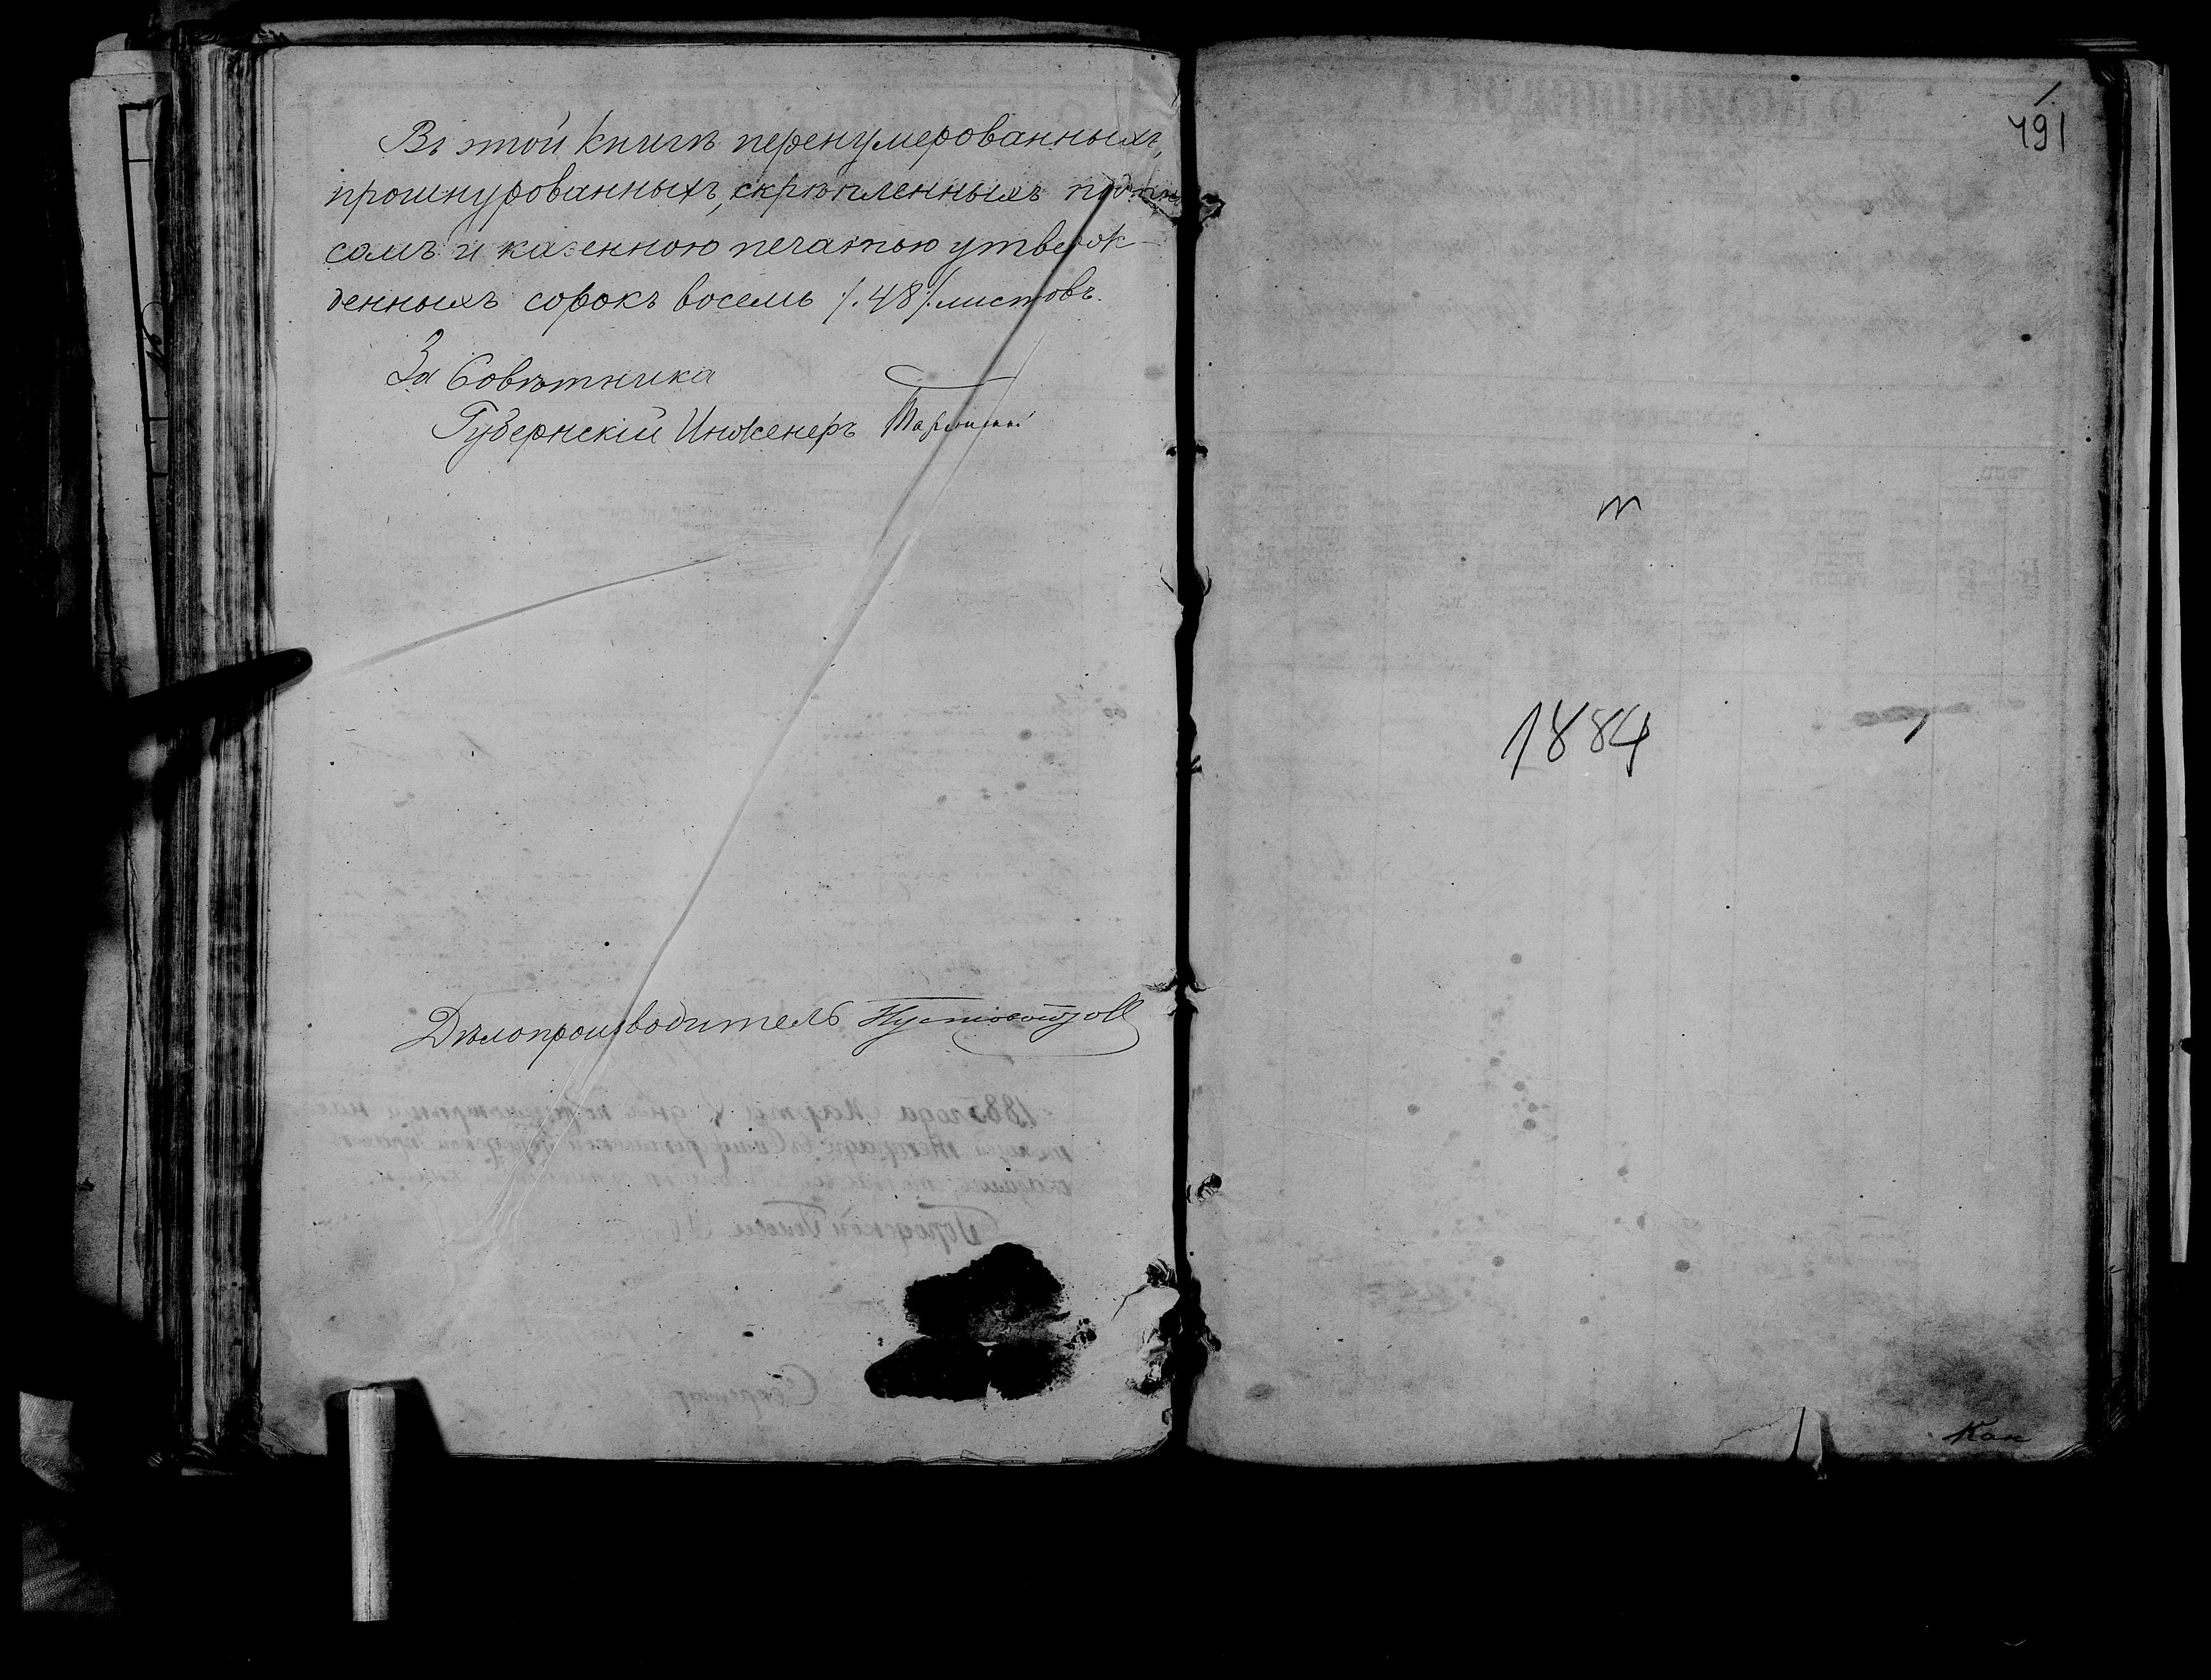 Въ этой книгѣ перенумерованныхъ,
прошнурованныхъ, скрѣпленныхъ подпи
самъ и казенною печатью утверж-
денныхъ сорокъ восемь /.48/. листовъ.
За Совѣтника
Губернскій Инженеръ
Дѣлопроизводитель
1.
491
м
1884
Кан